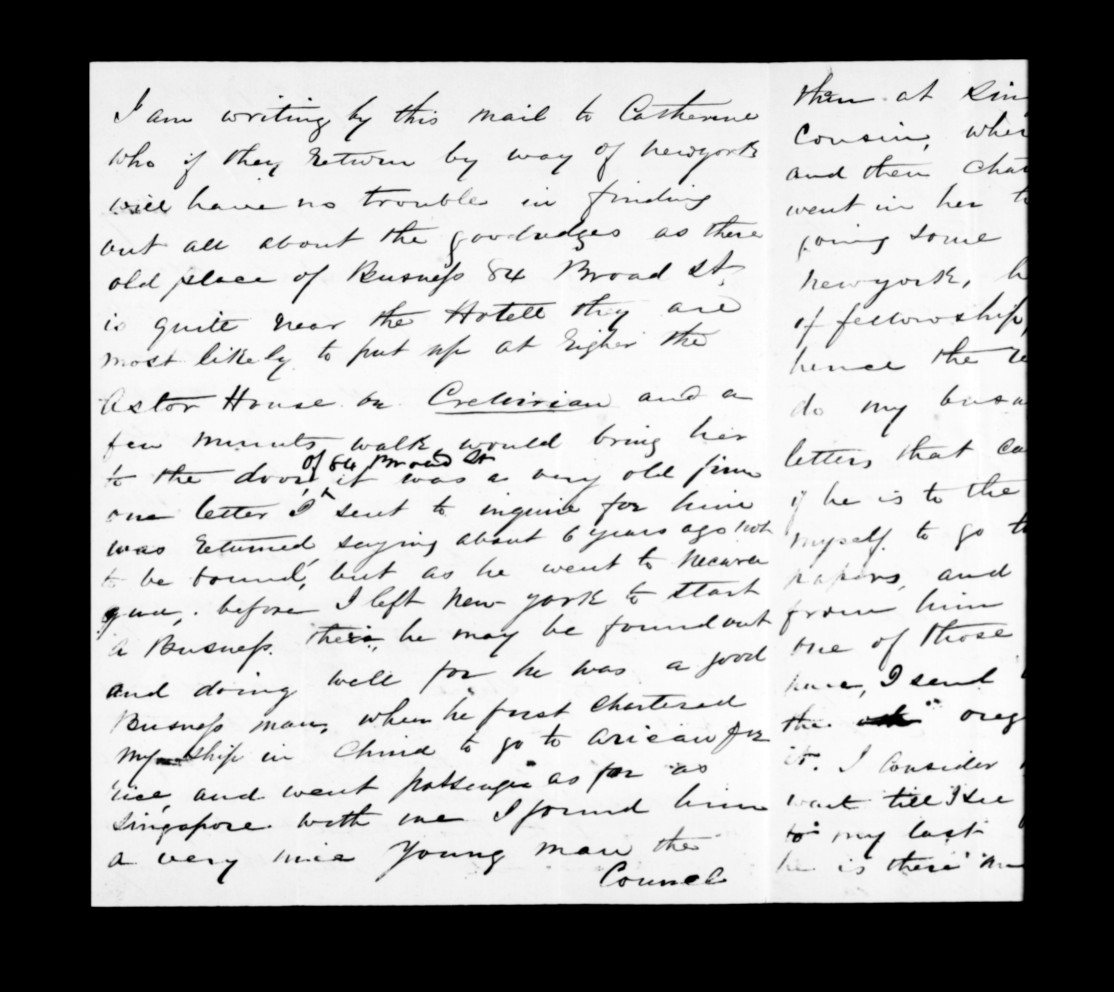 I am writing by this mail to Catherine
who if they return by way of newyork
will have no trouble in finding
out all about the goodridges as there
old place of Busness 84 Broad St,
is quite near the Hotell they are
most likely to put up at Eigher the
Astor House or and a
few minuts walk would bring her
to the door of 84 Broad St it was a very old firm
one letter I sent to inquire for him
was returned saying about 6 years ago not
to be found, but as he went to Necara
gua, before I left New york to start
a Busness there, he may be found out
and doing well for he was a good
Busness man, when he first chartered
my ship in China to go to for
rice, and went passenger as far as
Singapore with me I found him
a very nice young man the
Councel
then at Sin
Cousin, wher
and then cha
went in her t
going some
Newyork, h
of fellowship,
hence the re
do my busn
letters that ca
if he is to the
myself to go th
papers, and
from him
one of those
I send
the orig
it. I Consider
wait till I see
to my last
he is there